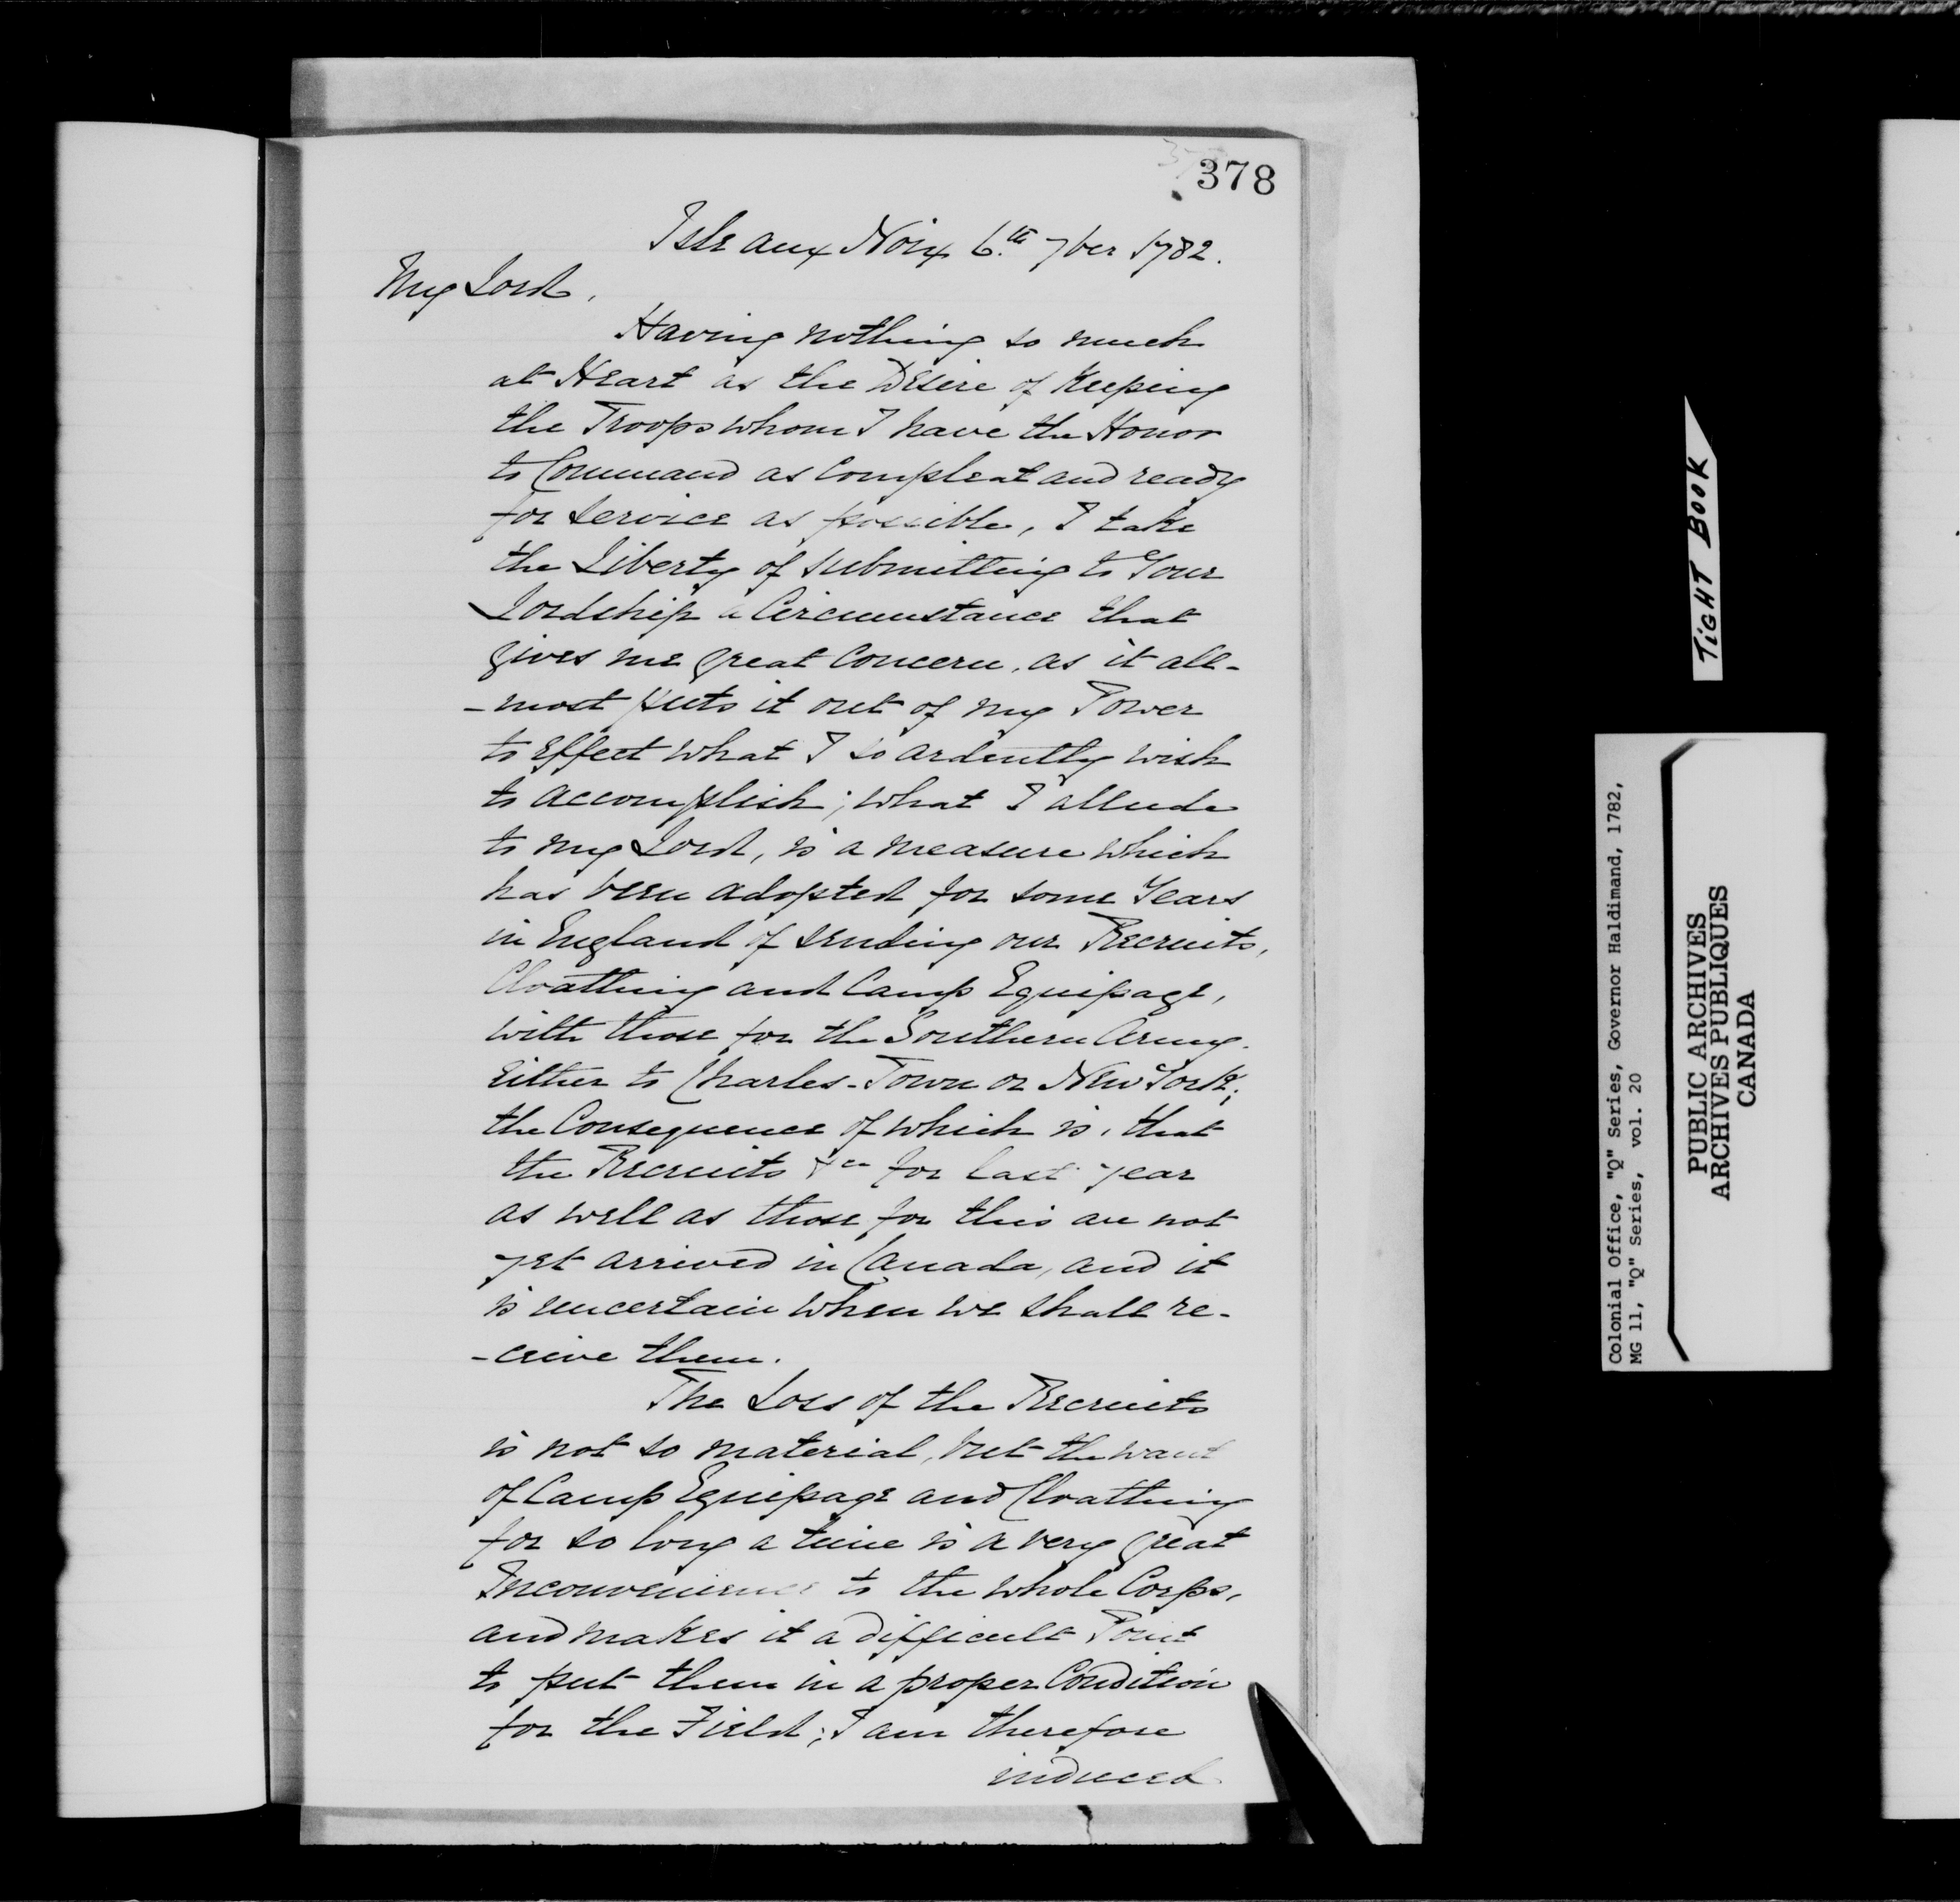 378
Isle aux Noix 6.th 7ber 1782.
My Lord,
Having nothing so much
at Heart as the Desire of Keeping
the Troops whom I have the Honor
to Command as Compleat and ready
for Service as possible, I take
the Liberty of submitting to Your
Lordship a Circumstance that
gives me great Concern, as it all-
-most puts it out of my Power
to effect what I so ardently wish
to accomplish; what I allude
to my Lord, is a measure which
has been adopted for some Years
in England of sending our Recruits,
Cloathing and Camp Equipage,
with those for the Southern Army.
Either to Charles-Town or New York;
the Consequence of which is, that
the Recruits &ca for last year
as well as those for this are not
yet arrived in Canada, and it
is uncertain when we shall re-
-ceive them.
The Loss of the Recruits
is not so material, but the want
of Camp Equipage and Cloathing
for so long a time is a very great
Inconvenience to the whole Corps,
and makes it a difficult Point
to put them in a proper Condition
for the Field; I am therefore
induced
TIGHT BOOK
Colonial Office, "Q" Series, Governor Haldimand, 1782,
MG 11, "Q" Series, vol. 20
PUBLIC ARCHIVES
ARCHIVES PUBLIQUES
CANADA